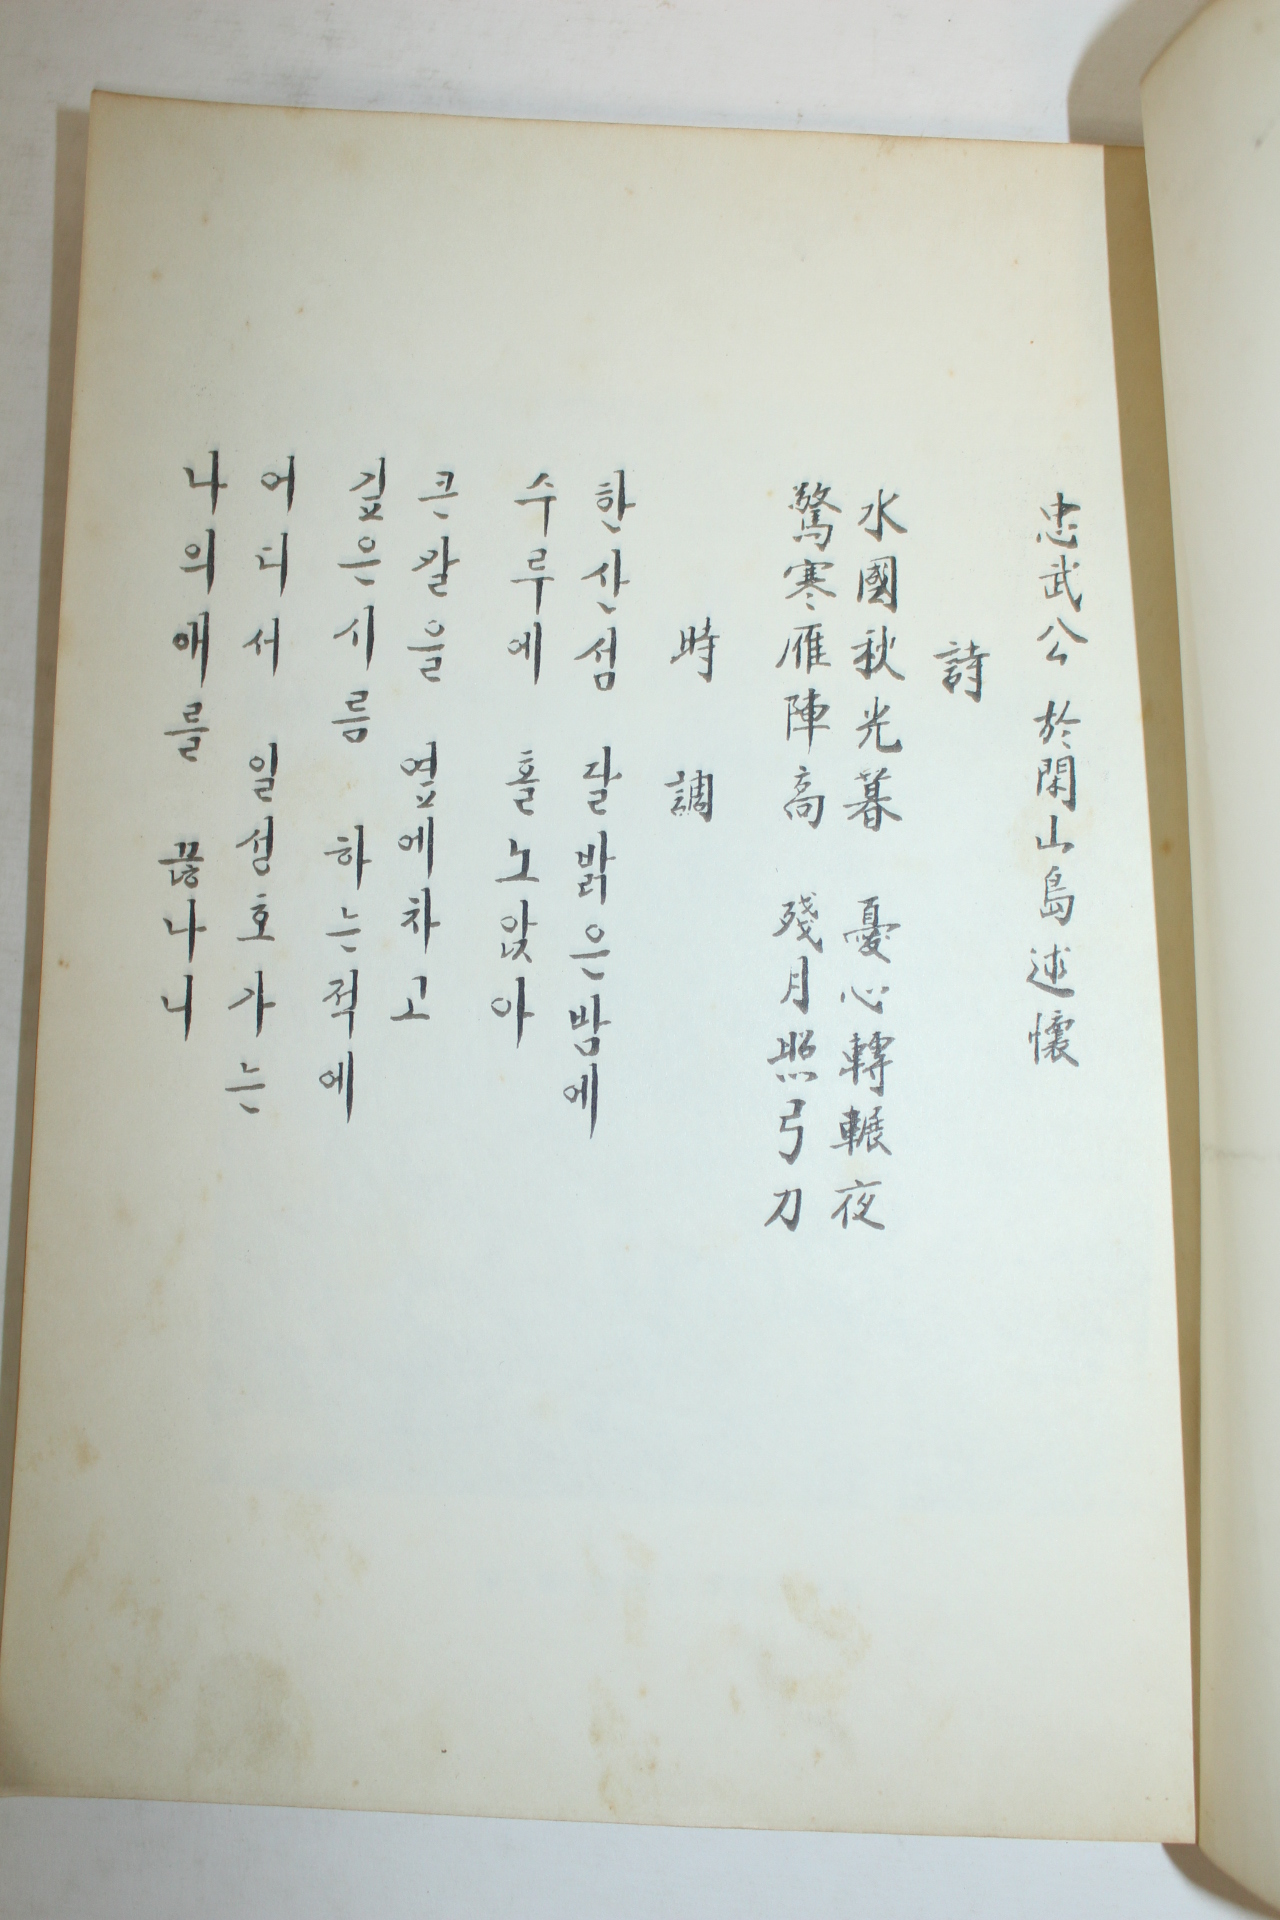 忠武公 於閑山島述懷
詩
水國秋光暮 憂心轉輾夜
驚寒雁陣高 殘月照弓刀
時調
한산섬 달밝은밤에
수루에 홀노앉아
큰깔을 옆에차고
깊은시름 하는적에
어디서 일성호가는
나의애를 끊나니